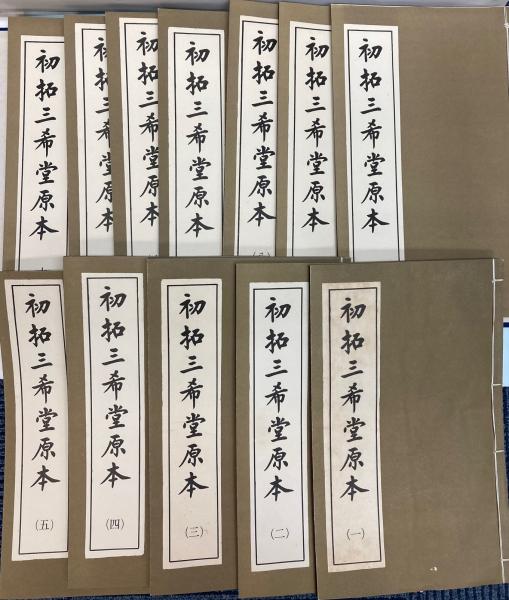 初拓三希堂原本
初拓三希堂原本
初拓三希堂原本
初拓三希堂原本
初拓三希堂原本
初拓三希堂原本
初拓三希堂原本
初拓三希堂原本
(一)
初拓三希堂原本
(二)
初拓三希堂原本
(三)
初拓三希堂原本
(四)
初拓三希堂原本
(五)